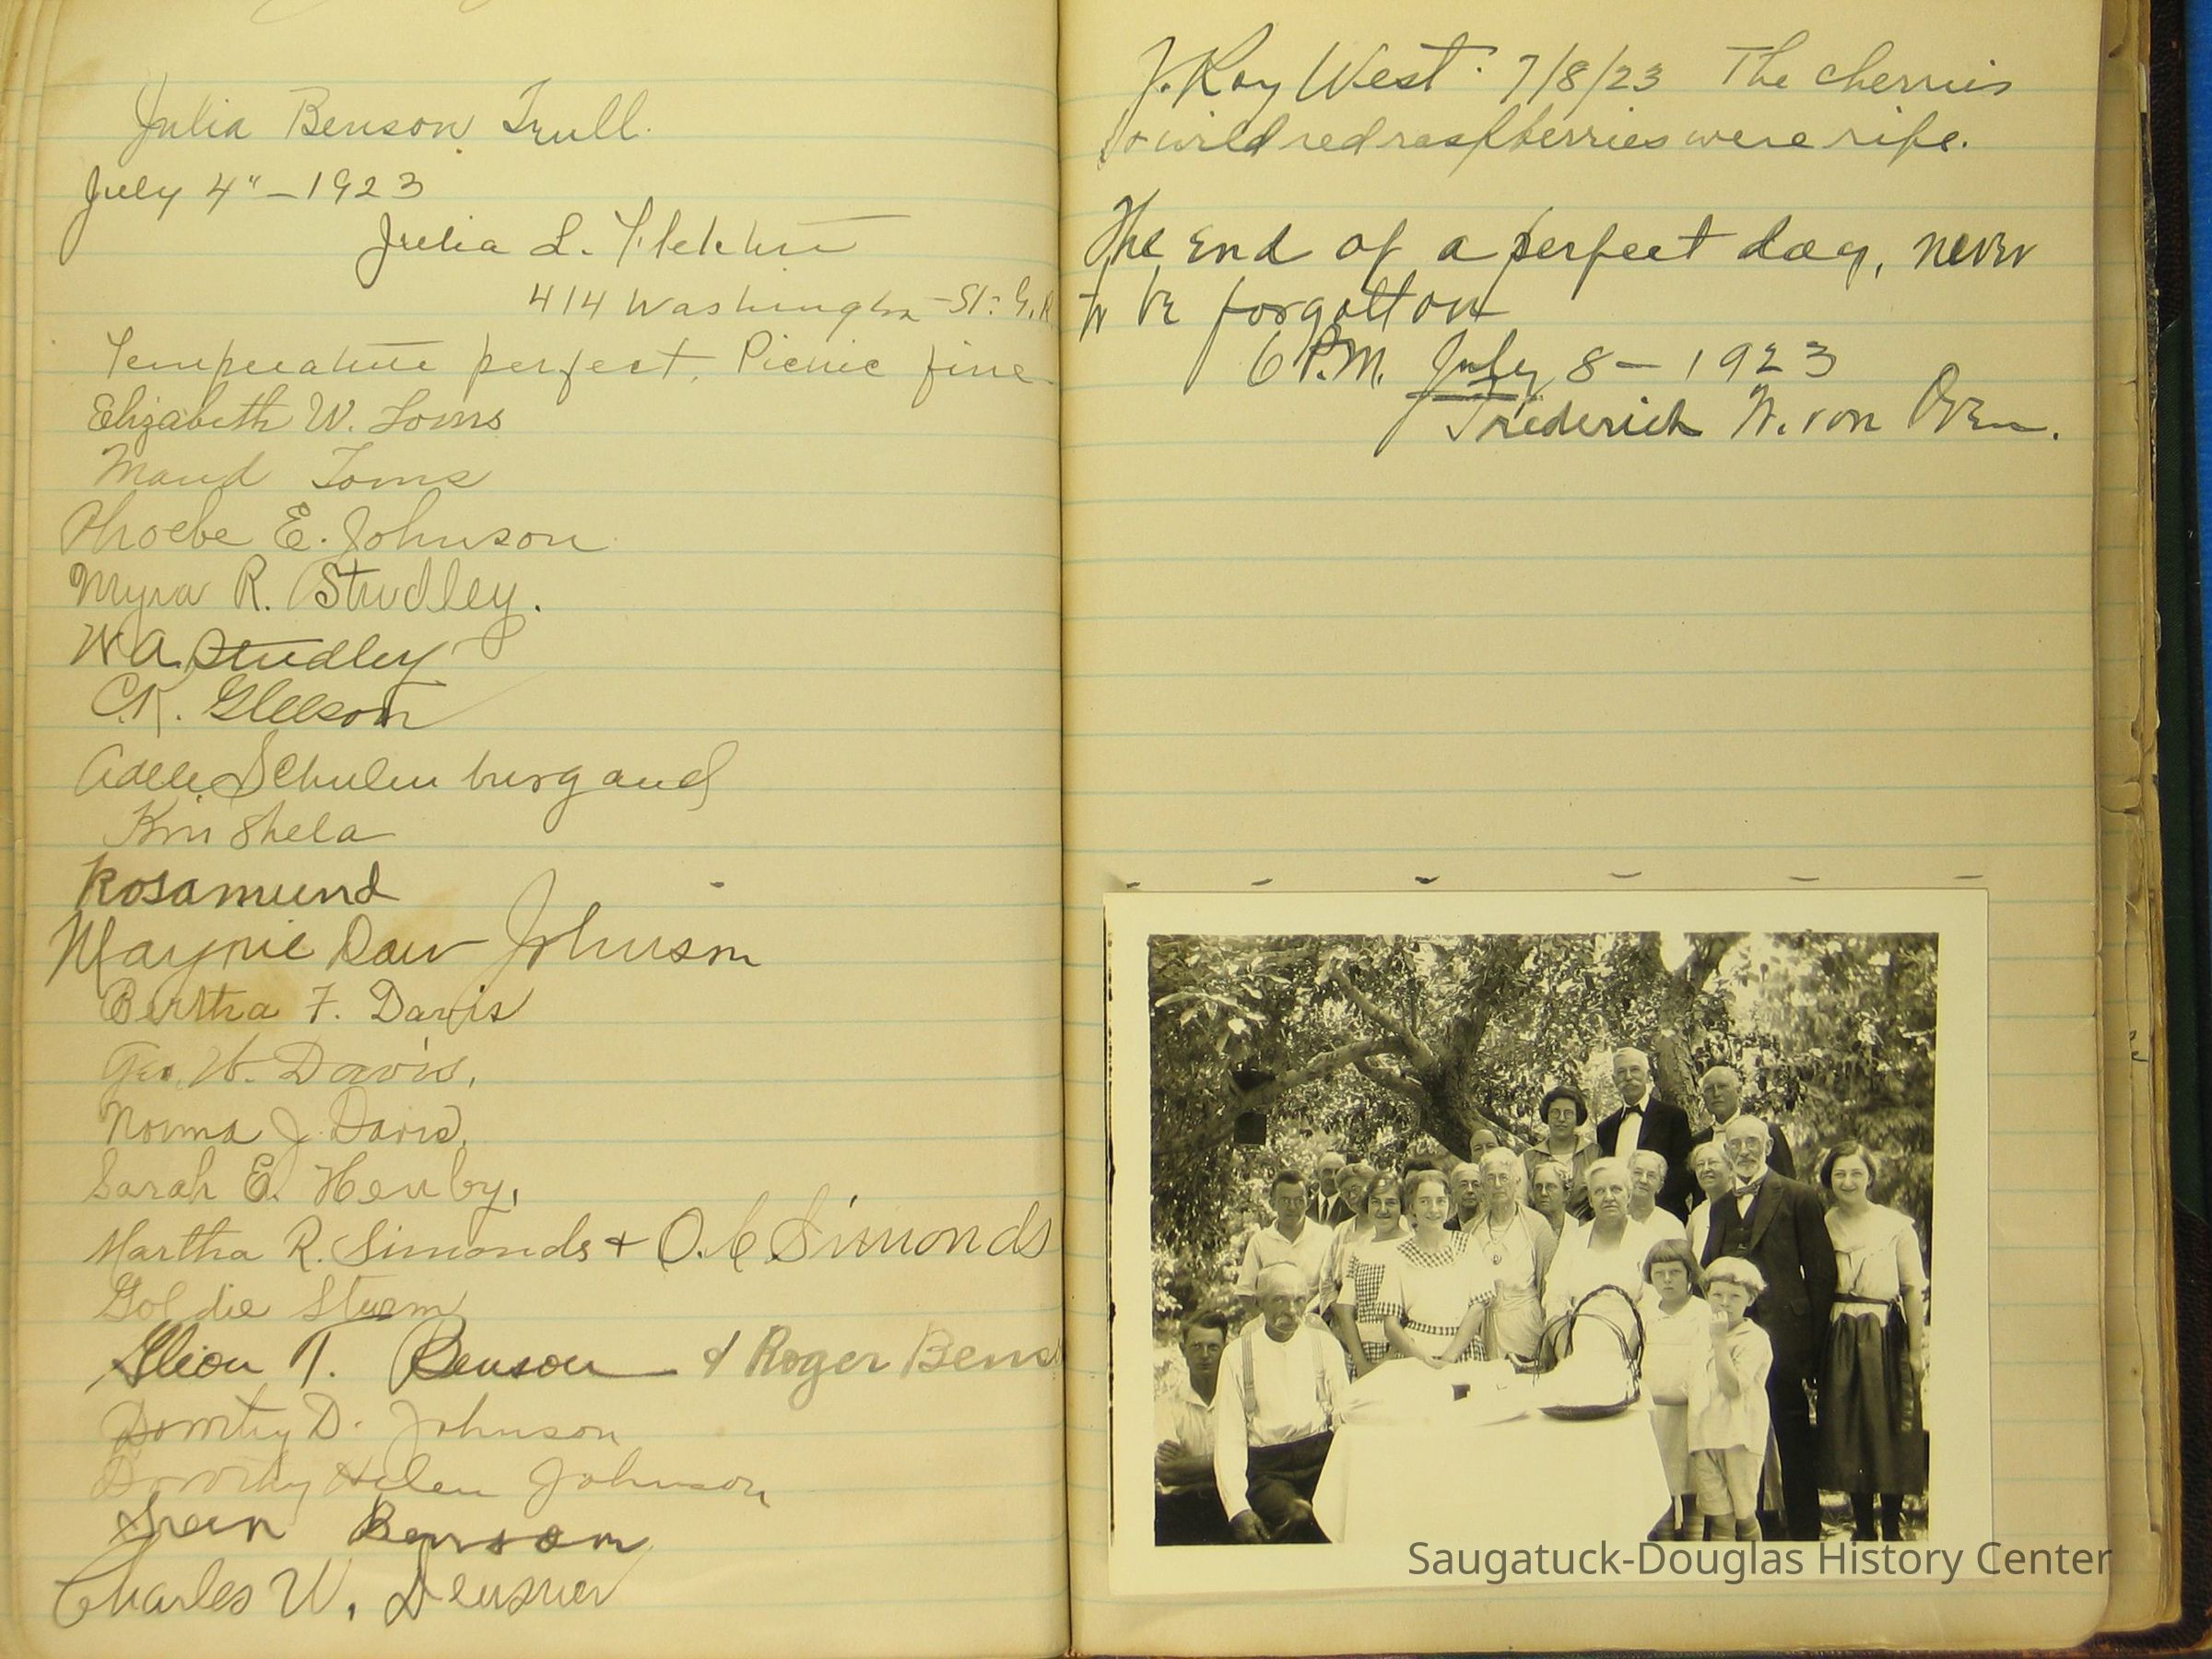 Julia Benson Trull.
July 4" - 1923
Julia L. Fletcher
414 Washington St. G.R.
Temperature perfect. Picnic fine.
Elizabeth W. Toms
Maud Toms
Phoebe E. Johnson
Myra R. Studley.
W A. Studley
C.K. Gleeson
Adele Schulenburg and
Shela
Rosamund
Marjorie Daw Johnson
Bertha F. Davis
Geo. W. Davis,
Norma J. Davis,
Sarah E. Henby,
Martha R. Simonds + O. C Simonds
Goldie Sturm
T. Benson & Roger Bens
Dorothy D. Johnson
Dorothy Helen Johnson
Benson
Charles W.
J. Roy West. 7/8/23 The cherries
& wild red raspberries were ripe.
The End of a perfect day, never
to be forgotton
6 P.M. July 8 - 1923
Frederick W. von Oven.
Saugatuck-Douglas History Center